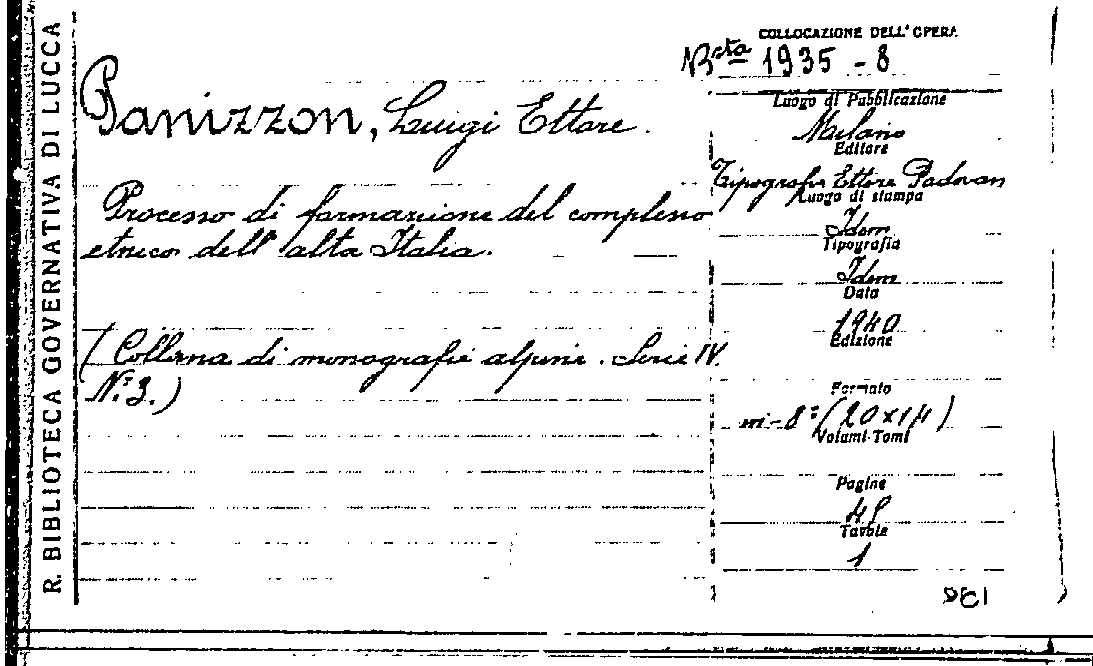 R. BIBLIOTECA GOVERNATIVA DI LUCCA
COLLOCAZIONE DELL'OPERA
Bcta 1935 - 8
Panizzon, Luigi Ettore.
Processo di formazione del complesso
etnico dell'alta Italia.
(Collana di monografie alpine. Serie IV.
N.° 3.)
Luogo di Pubblicazione
Milano
Editore
Tipografia Ettore Padovan
Luogo di stampa
Idem
Tipografia
Idem
Data
1940
Edizione
Formato
in-8° (20x14)
Volumi-Tomi
Pagine
Tavole
1